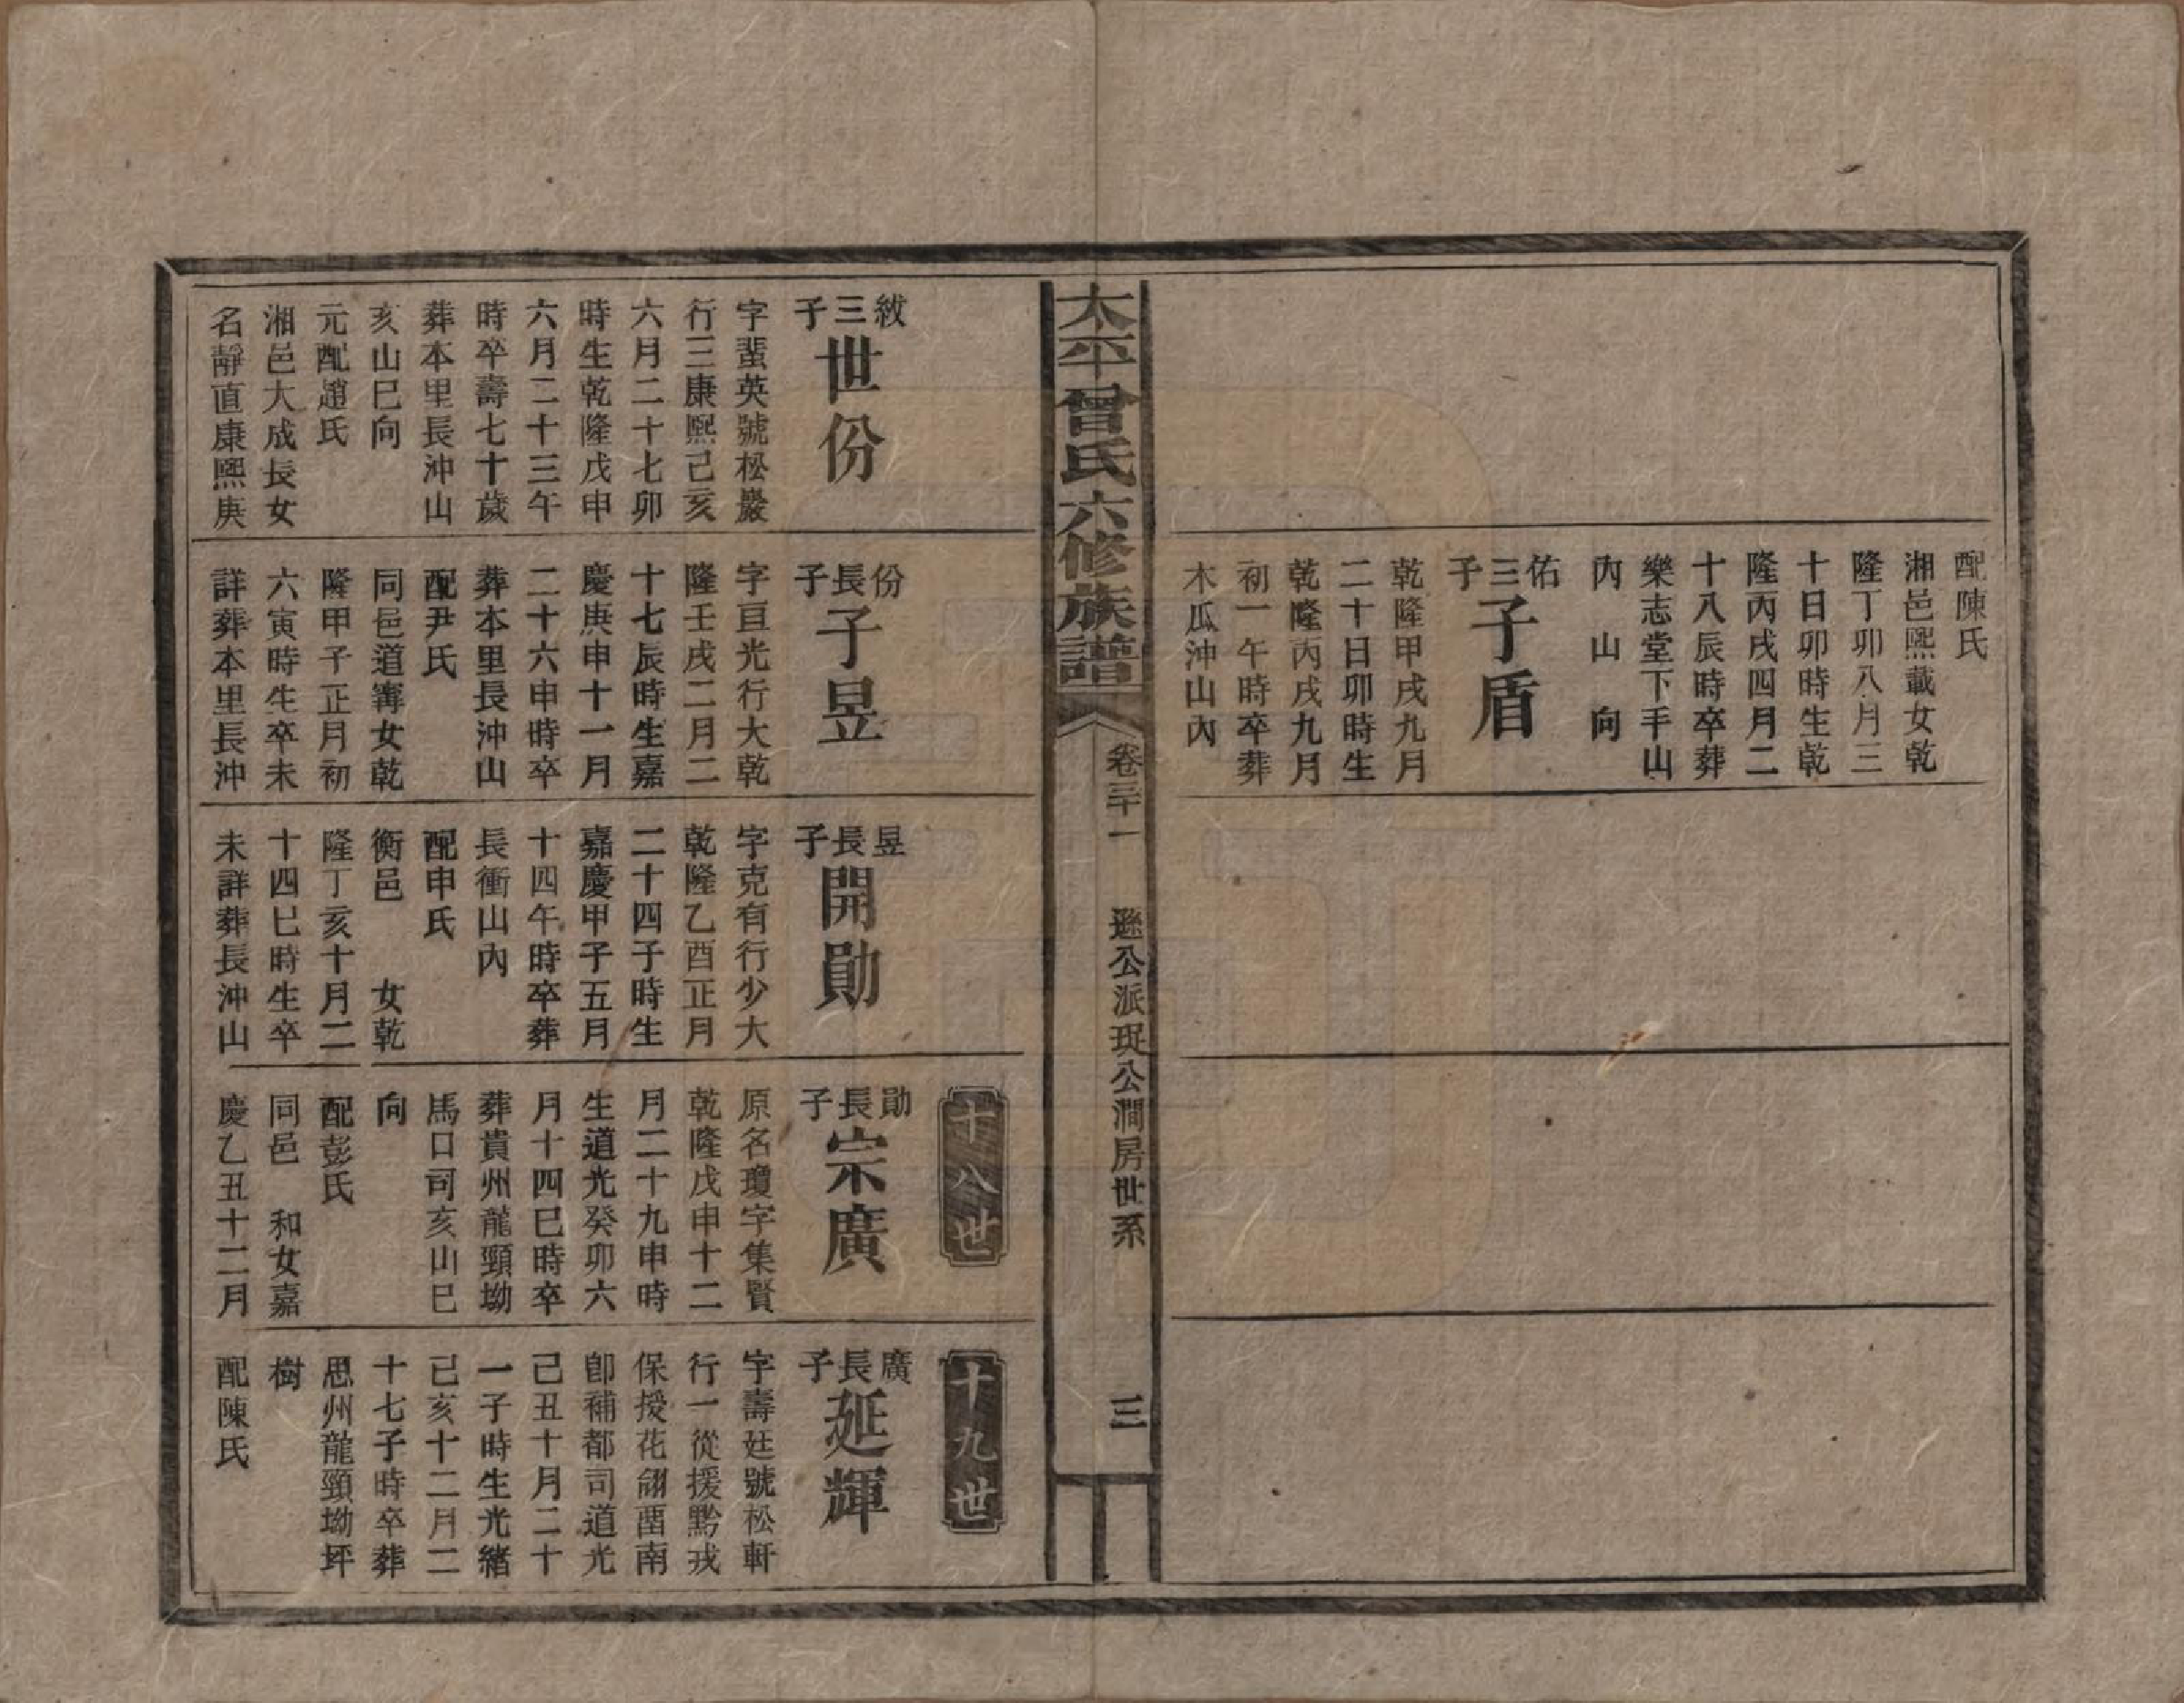 配陳氏
湘邑熙載女乾
隆丁卯八月三
十日卯時生乾
隆丙戌四月二
十八辰時卒葬
樂志堂下手山
內山向
佑三子
子盾
乾隆甲戌九月
二十日卯時生
乾隆丙戌九月
初一午時卒葬
木瓜沖山內
太平曾氏六修族譜
卷三十一
遜公派珽公澗房世系
三
紱三子
世份
字蜚英號松巖
行三康熙己亥
六月二十七卯
時生乾隆戊申
六月二十三午
時卒壽七十歲
葬本里長沖山
亥山巳向
元配趙氏
湘邑大成長女
名靜直康熙庚
份長子
子昱
字亘光行大乾
隆壬戌二月二
十七辰時生嘉
慶庚申十一月
二十六申時卒
葬本里長沖山
配尹氏
同邑道壽女乾
隆甲子正月初
六寅時生卒未
詳葬本里長沖
昱長子
開勛
字克有行少大
乾隆乙酉正月
二十四子時生
嘉慶甲子五月
十四午時卒葬
長衝山內
配申氏
衡邑　女乾
隆丁亥十月二
十四巳時生卒
未詳葬長沖山
十八世
勛長子
宗廣
原名瓊字集賢
乾隆戊申十二
月二十九申時
生道光癸卯六
月十四巳時卒
葬貴州龍頸坳
馬口司亥山巳
向
配彭氏
同邑　和女嘉
慶乙丑十二月
十九世
廣長子
延輝
字壽廷號松軒
行一從援黔戎
保授花翎酉南
卽補都司道光
己丑十月二十
一子時生光緒
己亥十二月二
十七子時卒葬
思州龍頸坳坪
樹
配陳氏